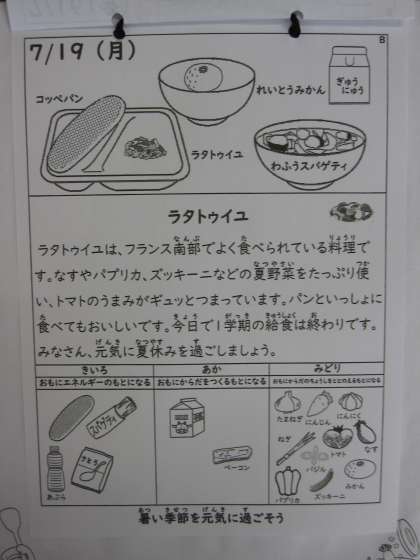 7/19（月）
B
コッペパン
れいとうみかん
ぎゅう
にゅう
ラタトゥイユ
わふうスパゲティ
ラタトゥイユ
ラタトゥイユは、フランス南部でよく食べられている料理で
す。なすやパプリカ、ズッキーニなどの夏野菜をたっぷり使
い、トマトのうまみがギュッとつまっています。パンといっしょに
食べてもおいしいです。今日で1学期の給食は終わりです。
みなさん、元気に夏休みを過ごしましょう。
きいろ
あか
みどり
おもにエネルギーのもとになる
おもにからだをつくるもとになる
おもにからだのちょうしをととのえるもとになる
スパゲティ
さとう
あぶら
ベーコン
たまねぎ
にんじん
にんにく
ねぎ
トマト
なす
バジル
みかん
パプリカ
ズッキーニ
暑い季節を元気に過ごそう